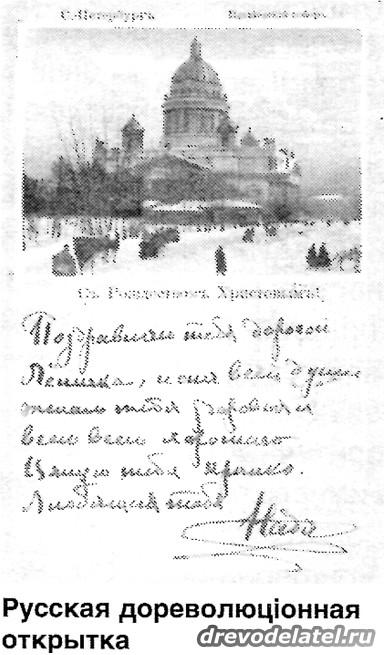 С.Петербургъ.
Съ Рождествомъ Христовымъ!
Поздравляю тебя дорогой
Лёничка, и отъ всей души
желаю тебѣ здоровья и
всего всего хорошаго
Цѣлую тебя крѣпко.
Любящая тебя
Надя
Русская дореволюціонная
открытка
drevodelatel.ru